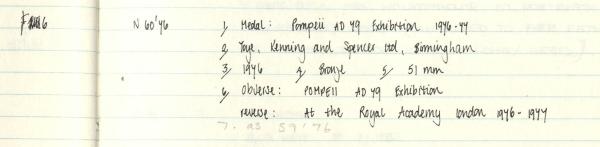 N 60'76 1, Medal: Pompeii AD 79 Exhibition 1976-77
2, Toye, Kenning and Spencer Ltd, Birmingham
3, 1976 4, Bronze 5, 51 mm
6, Obverse: POMPEII AD 79 Exhibition
reverse: At the Royal Academy London 1976-1977
7. as 59'76